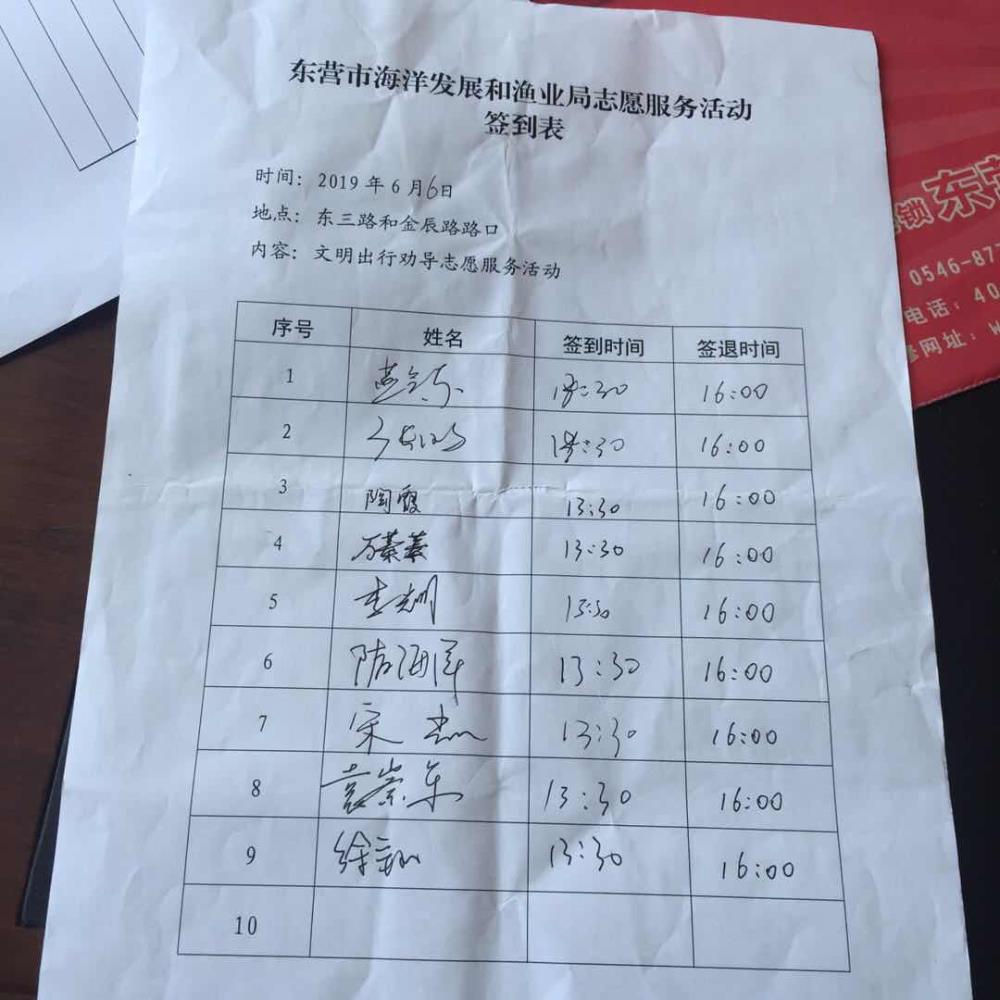 东营市海洋发展和渔业局志愿服务活动
签到表
时间：2019年6月6日
地点：东三路和金辰路路口
内容：文明出行劝导志愿服务活动
序号 姓名 签到时间 签退时间
1 13:30 16:00
2 13:30 16:00
3 陶霞 13:30 16:00
4 万蓁蓁 13:30 16:00
5 13:30 16:00
6 陆海洋 13:30 16:00
7 宋杰 13:30 16:00
8 袁崇东 13:30 16:00
9 13:30 16:00
10
锁 东营
0546-87
电话：40
修网址：W